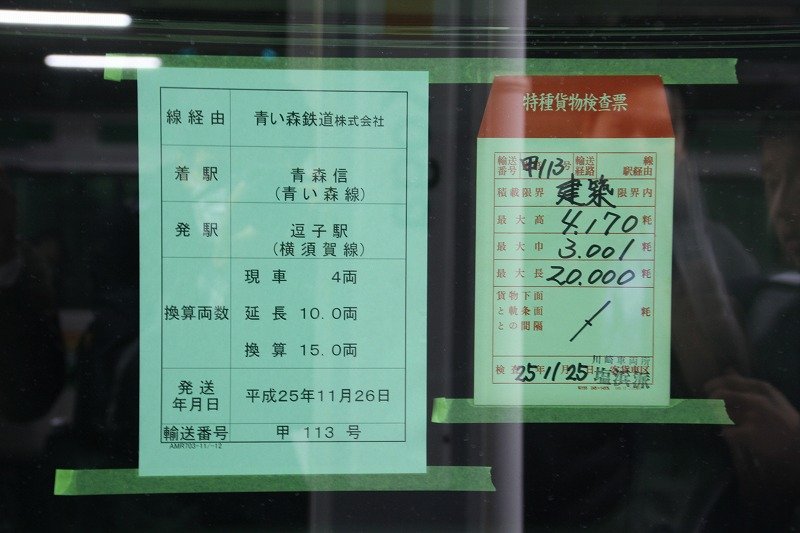 線経由 青い森鉄道株式会社
着駅 青森信
(青い森線)
発駅 逗子駅
(横須賀線)
換算両数 現車 4両
延長 10.0両
換算 15.0両
発送
年月日 平成25年11月26日
輸送番号 甲 113 号
AMR703-11/-12
特種貨物検査票
輸送番号 甲113号 輸送経路 線駅経由
積載限界 建築 限界内
最大高 4.170 粍
最大巾 3.001 粍
最大長 20.000 粍
貨物下面
と軌条面 粍
との間隔
川崎車両所
検査 25年11月25日 客貨車区
塩浜派